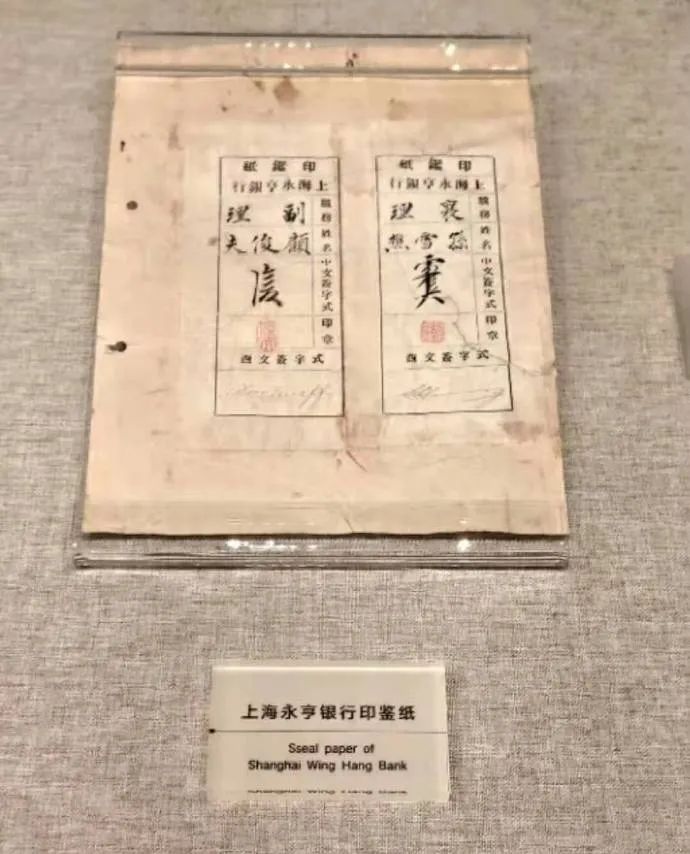 印鑑紙
上海永亨銀行
職務 襄理
姓名 孫雪
中文簽字式
印章
西文簽字式
印鑑紙
上海永亨銀行
職務 副理
姓名 顧俊夫
中文簽字式
印章
西文簽字式
上海永亨银行印鉴纸
Sseal paper of
Shanghai Wing Hang Bank